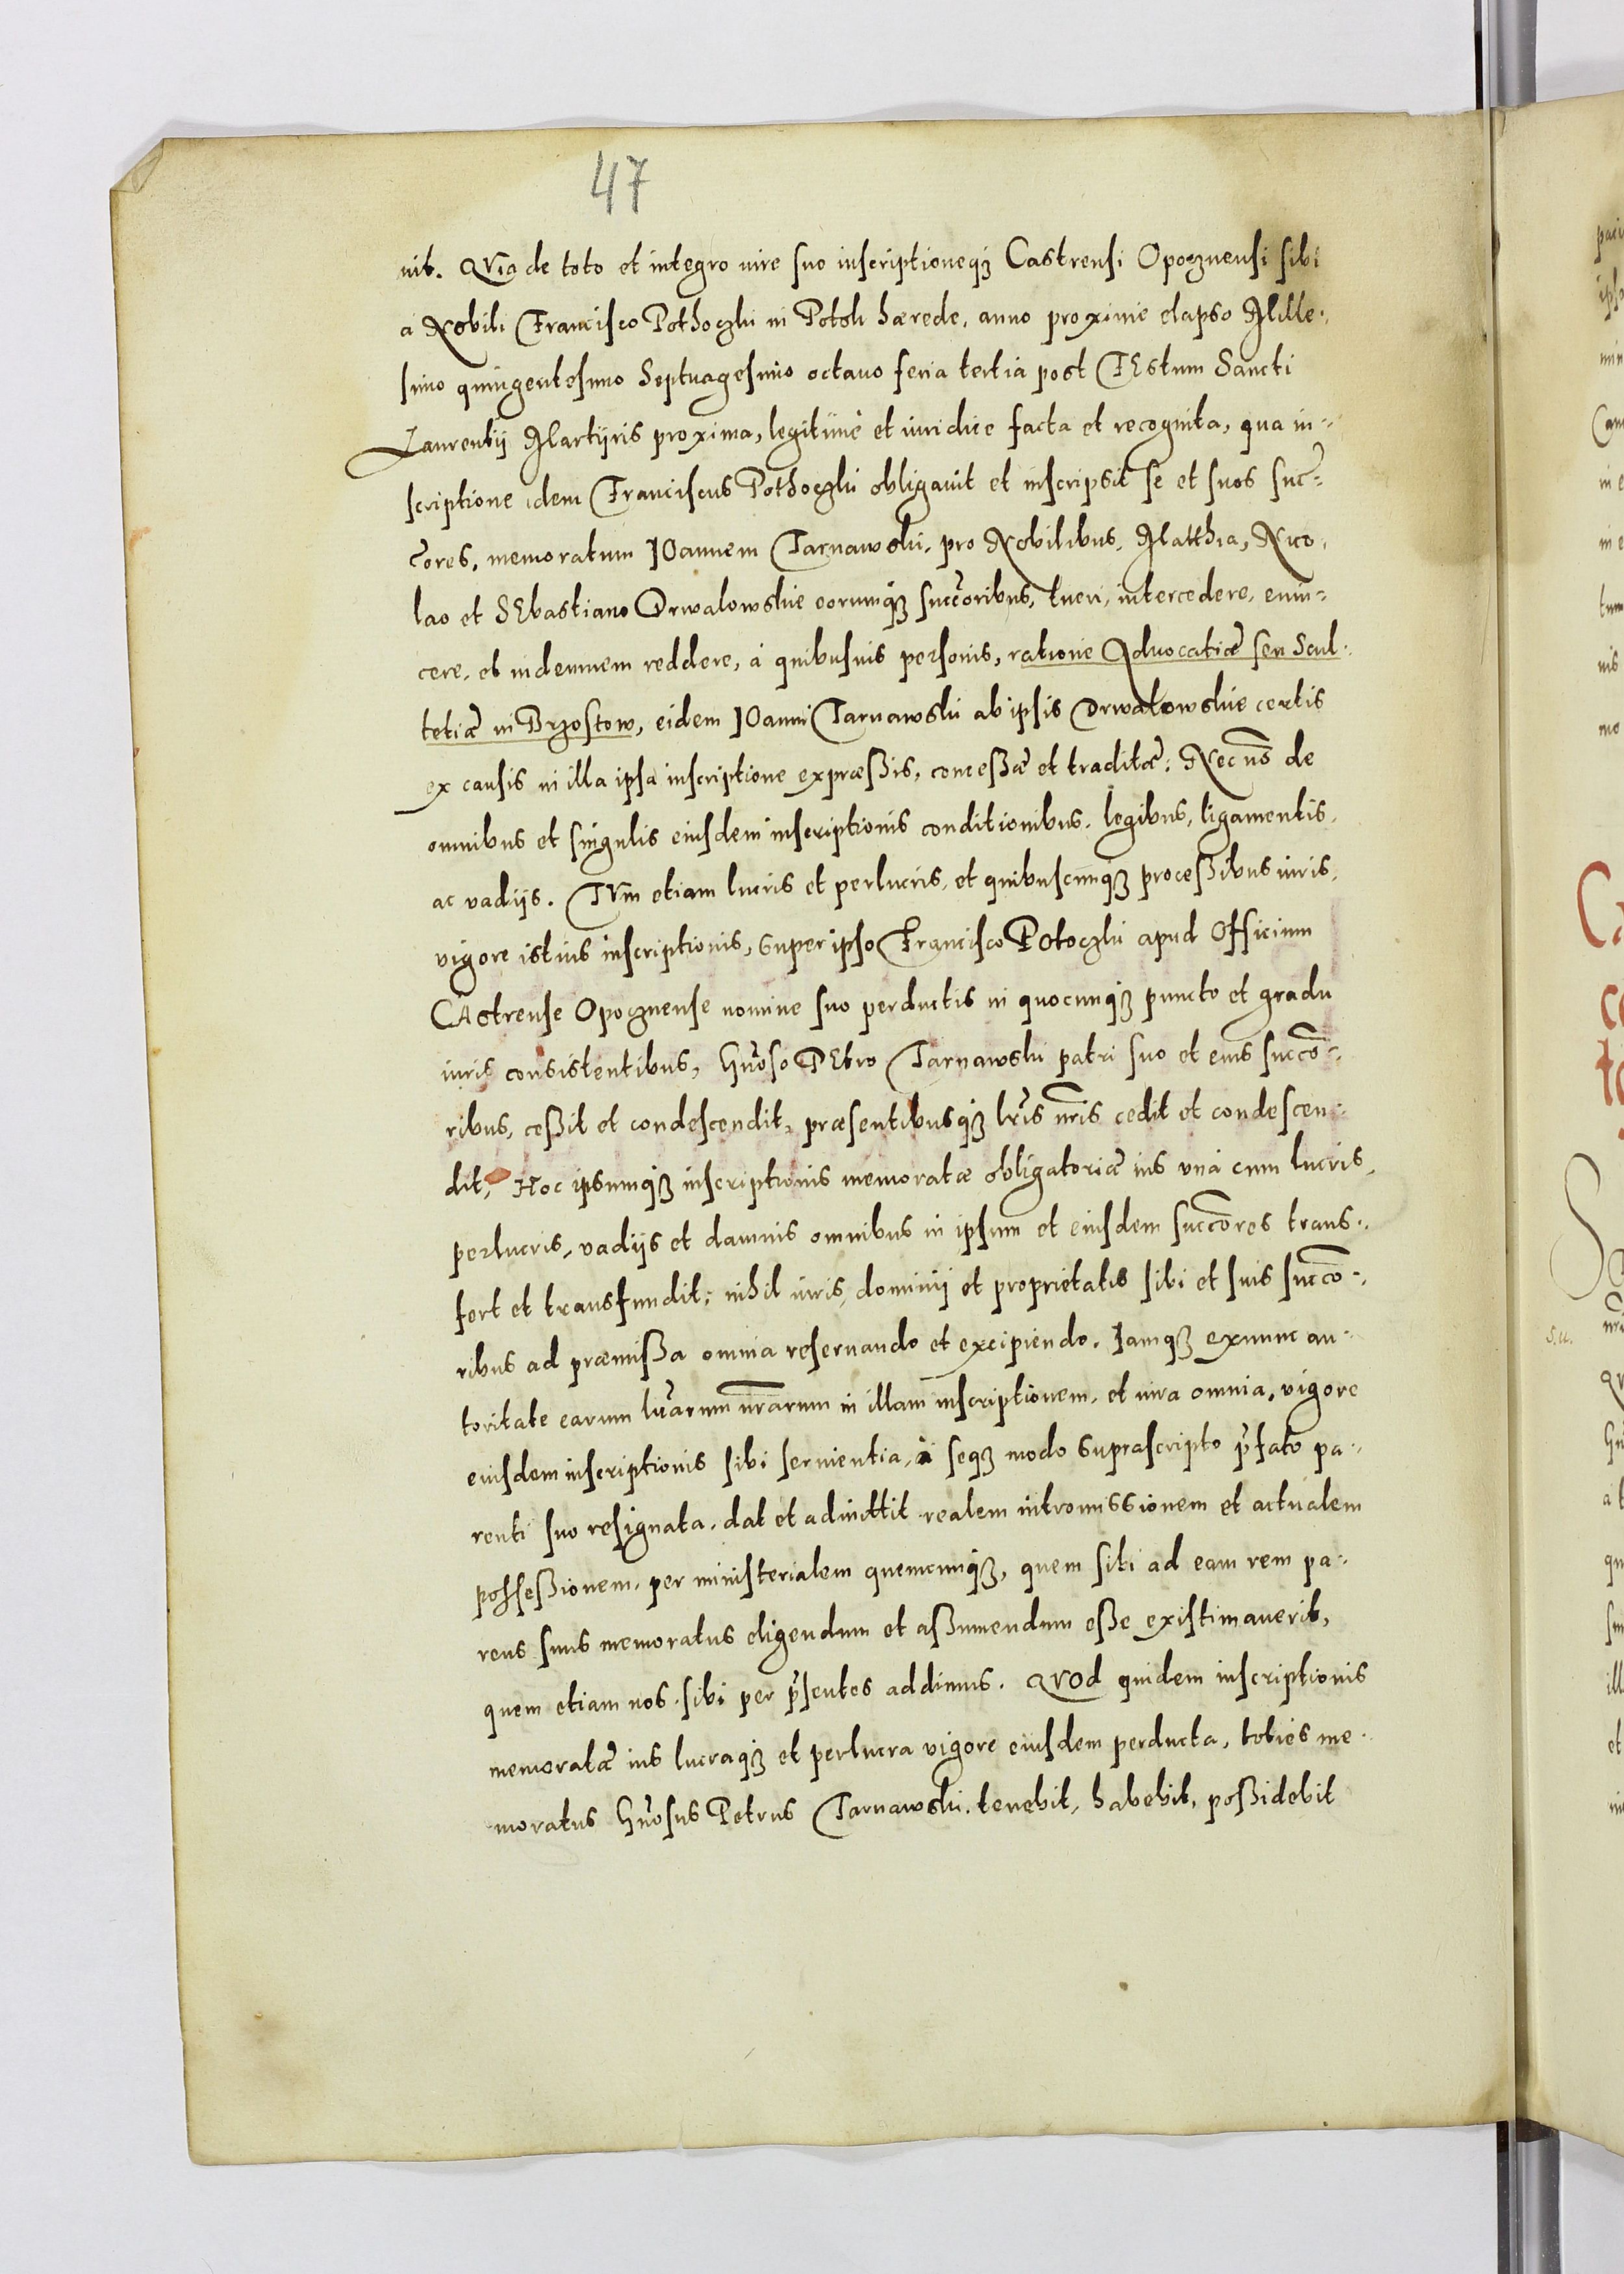 47
uit. QVia de toto et integro iure suo inscriptioneqꝫ Castrensi Opocznensi sibi
à Nobili Francisco Pothoczki in Potok hærede, anno proxime elapso Mille-
simo quingentesimo Septuagesimo octauo feria tertia post FEstum Sancti
Laurentij Martyris proxima, legitimè et iuridice facta et recognita, qua in-
scriptione idem Franciscus Pothoczki obligauit et inscripsit se et suos suc̃-
c̃ores, memoratum IOannem Tarnawski, pro Nobilibus, Matthia, Nico-
lao et SEbastiano Drwalowskie eorumqꝫ succ̃oribus, tueri, intercedere, euin-
cere, et indemnem reddere, à quibusuis personis, ratione Aduocatiæ seu Scul-
tetiæ in Brzostow, eidem IOanni Tarnawski ab ipsis Drwalowskie certis
ex causis in illa ipsa inscriptione expræßis, conceßæ et traditæ: Nec nõ de
omnibus et singulis eiusdem inscriptionis conditionibus, legibus, ligamentis,
ac vadijs. TVm etiam lucris et perlucris, et quibuscunqꝫ proceßibus iuris,
vigore istius inscriptionis, super ipso Francisco Potoczki apud Officium
CAstrense Opocznense nomine suo perductis in quocunqꝫ puncto et gradu
iuris consistentibus, Gñoso PEtro Tarnawski patri suo et eius succo-
ribus, ceßit et condescendit, præsentibusqꝫ lr̃is nr̃is cedit et condescen-
dit, Hoc ipsumqꝫ inscriptionis memoratæ obligatoriæ ius vnà cum lucris,
perlucris, vadijs et damnis omnibus in ipsum et eiusdem succ̃ores trans-
fert et transfundit; nihil iuris, dominij et proprietatis sibi et suis succo-
ribus ad præmißa omnia reseruando et excipiendo. Iamqꝫ exnunc au-
toritate earum lr̃arum nr̃arum in illam inscriptionem, et iura omnia, vigore
eiusdem inscriptionis sibi seruientia, à seqꝫ modo suprascripto p̃fato pa-
renti suo resignata, dat et admittit realem intromissionem et actualem
posseßionem, per ministerialem quemcunqꝫ, quem sibi ad eam rem pa-
rens suus memoratus eligendum et aßumendum eße existimauerit,
quem etiam nos sibi per p̃sentes addimus. QVOd quidem inscriptionis
memoratæ ius lucraqꝫ et perlucra vigore eiusdem perducta, toties me-
moratus Gñosus Petrus Tarnawski tenebit, habebit, poßidebit